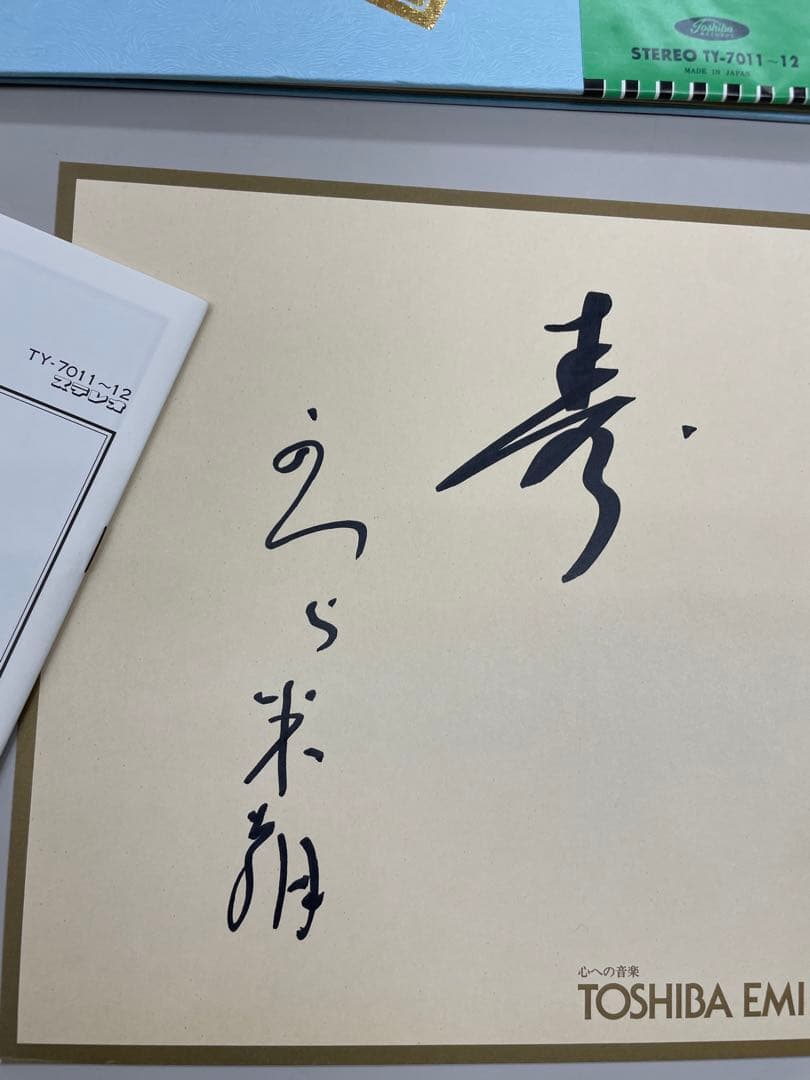 Toshiba
RECORDS
STEREO TY-7011~12
MADE IN JAPAN
TY-7011~12
ステレオ
寿
かつら米朝
心への音楽
TOSHIBA EMI